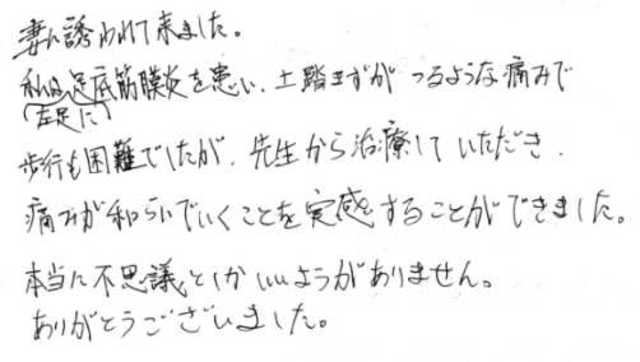 妻に誘われて来ました。
私は足底筋膜炎を患い、土踏まずが つるような痛みで
(左足に)
歩行も困難でしたが、先生から治療して いただき、
痛みが和らいでいくことを実感することができました。
本当に不思議としかいいようがありません。
ありがとうございました。